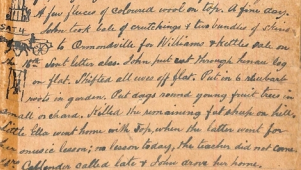 A few pieces of coloured wool on top. A fine day.
SAT 4 John took bale of crutchings & two bundles of skins
to Ormondville for Williams & Kettles sale on
the 15th. Sent letter also. John put cut through
on flat. Shifted all ewes off flat. Put in a rhubarb
roots in garden. Put dags round young fruit trees in
small orchard. Killed the remaining fat sheep on hill.
Little Ella went home with Top, when the latter went for
music lesson; no lesson today, the teacher did not come.
Callender called late & John drove her home.